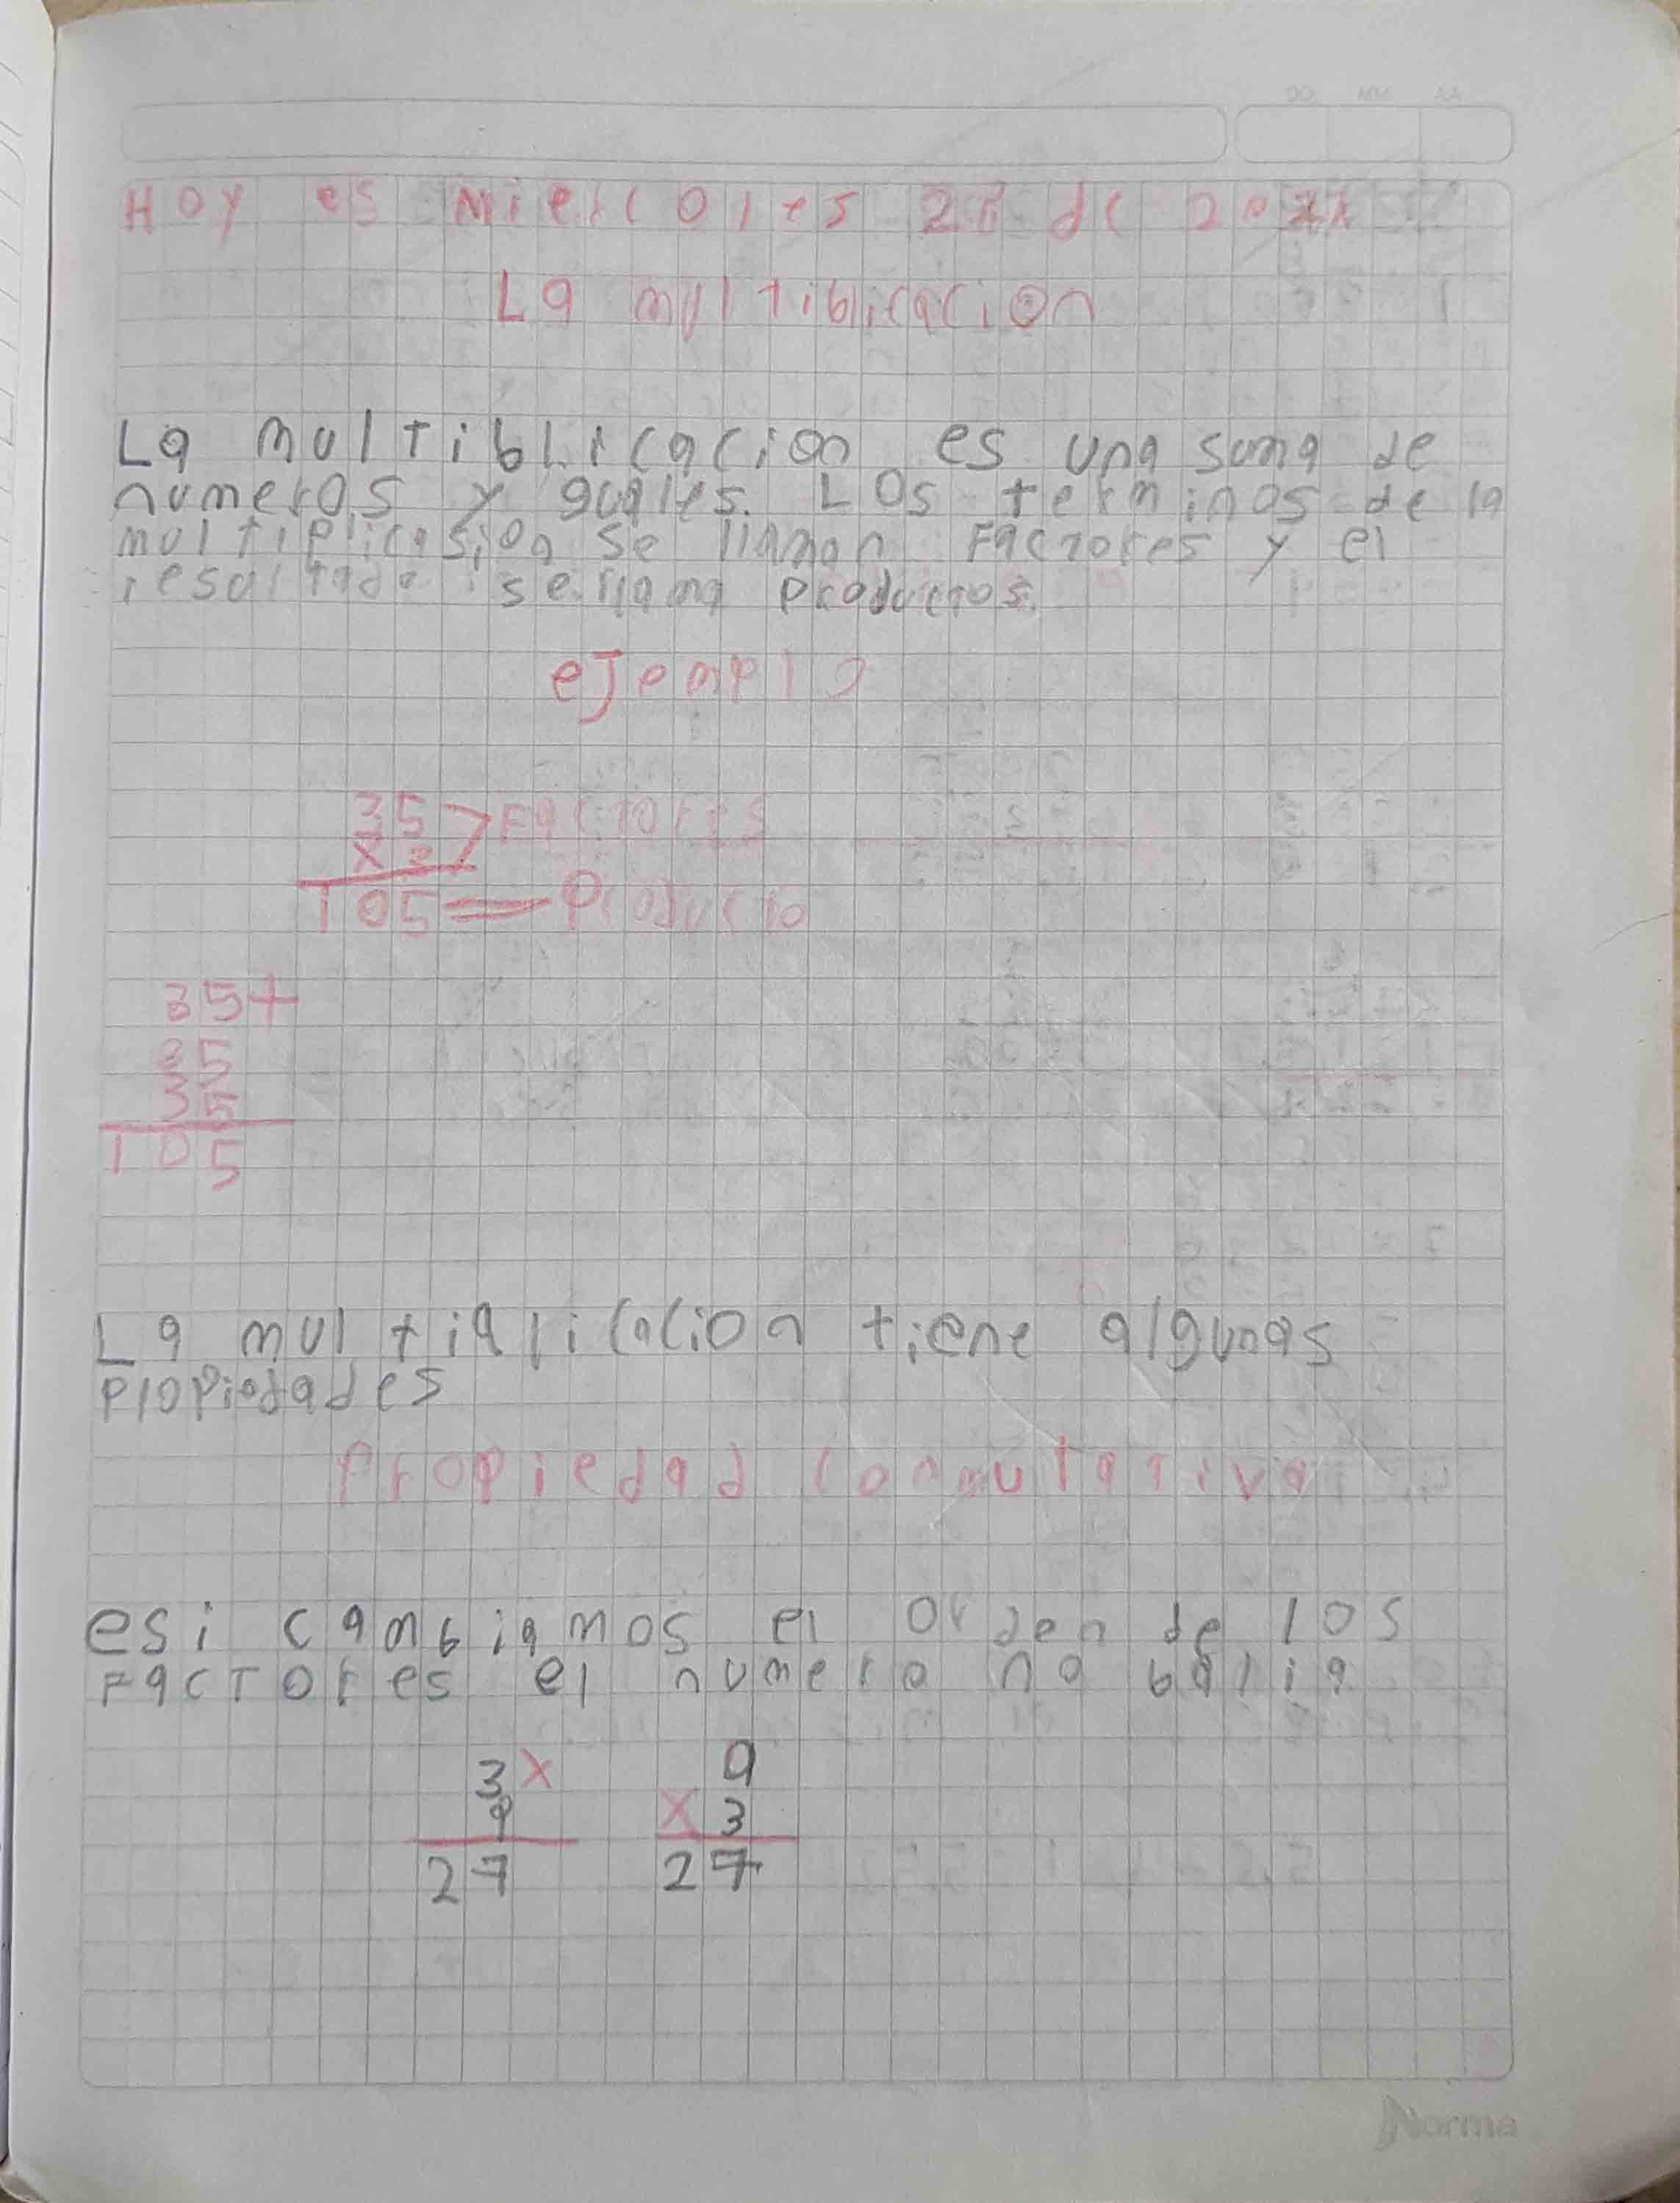 DD MM AA
Hoy es miercoles 28 de
La multiblicacion
La multiblicacion es una suma de
numeros y guales. Los terminos de la
multiplicasion se llaman Factores y el
resultado se llama productos.
ejemplo
35 Factores
x 3
105 = Producto
35+
35
35
105
La multiplicacion tiene algunas
propiedades
Propiedad conmutativa
esi cambiamos el orden de los
Factores el numero no balia
3 x 9
9 x 3
27 27
Norma